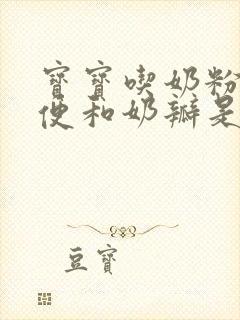 寶寶喫奶粉
便和奶瓣是
豆寶